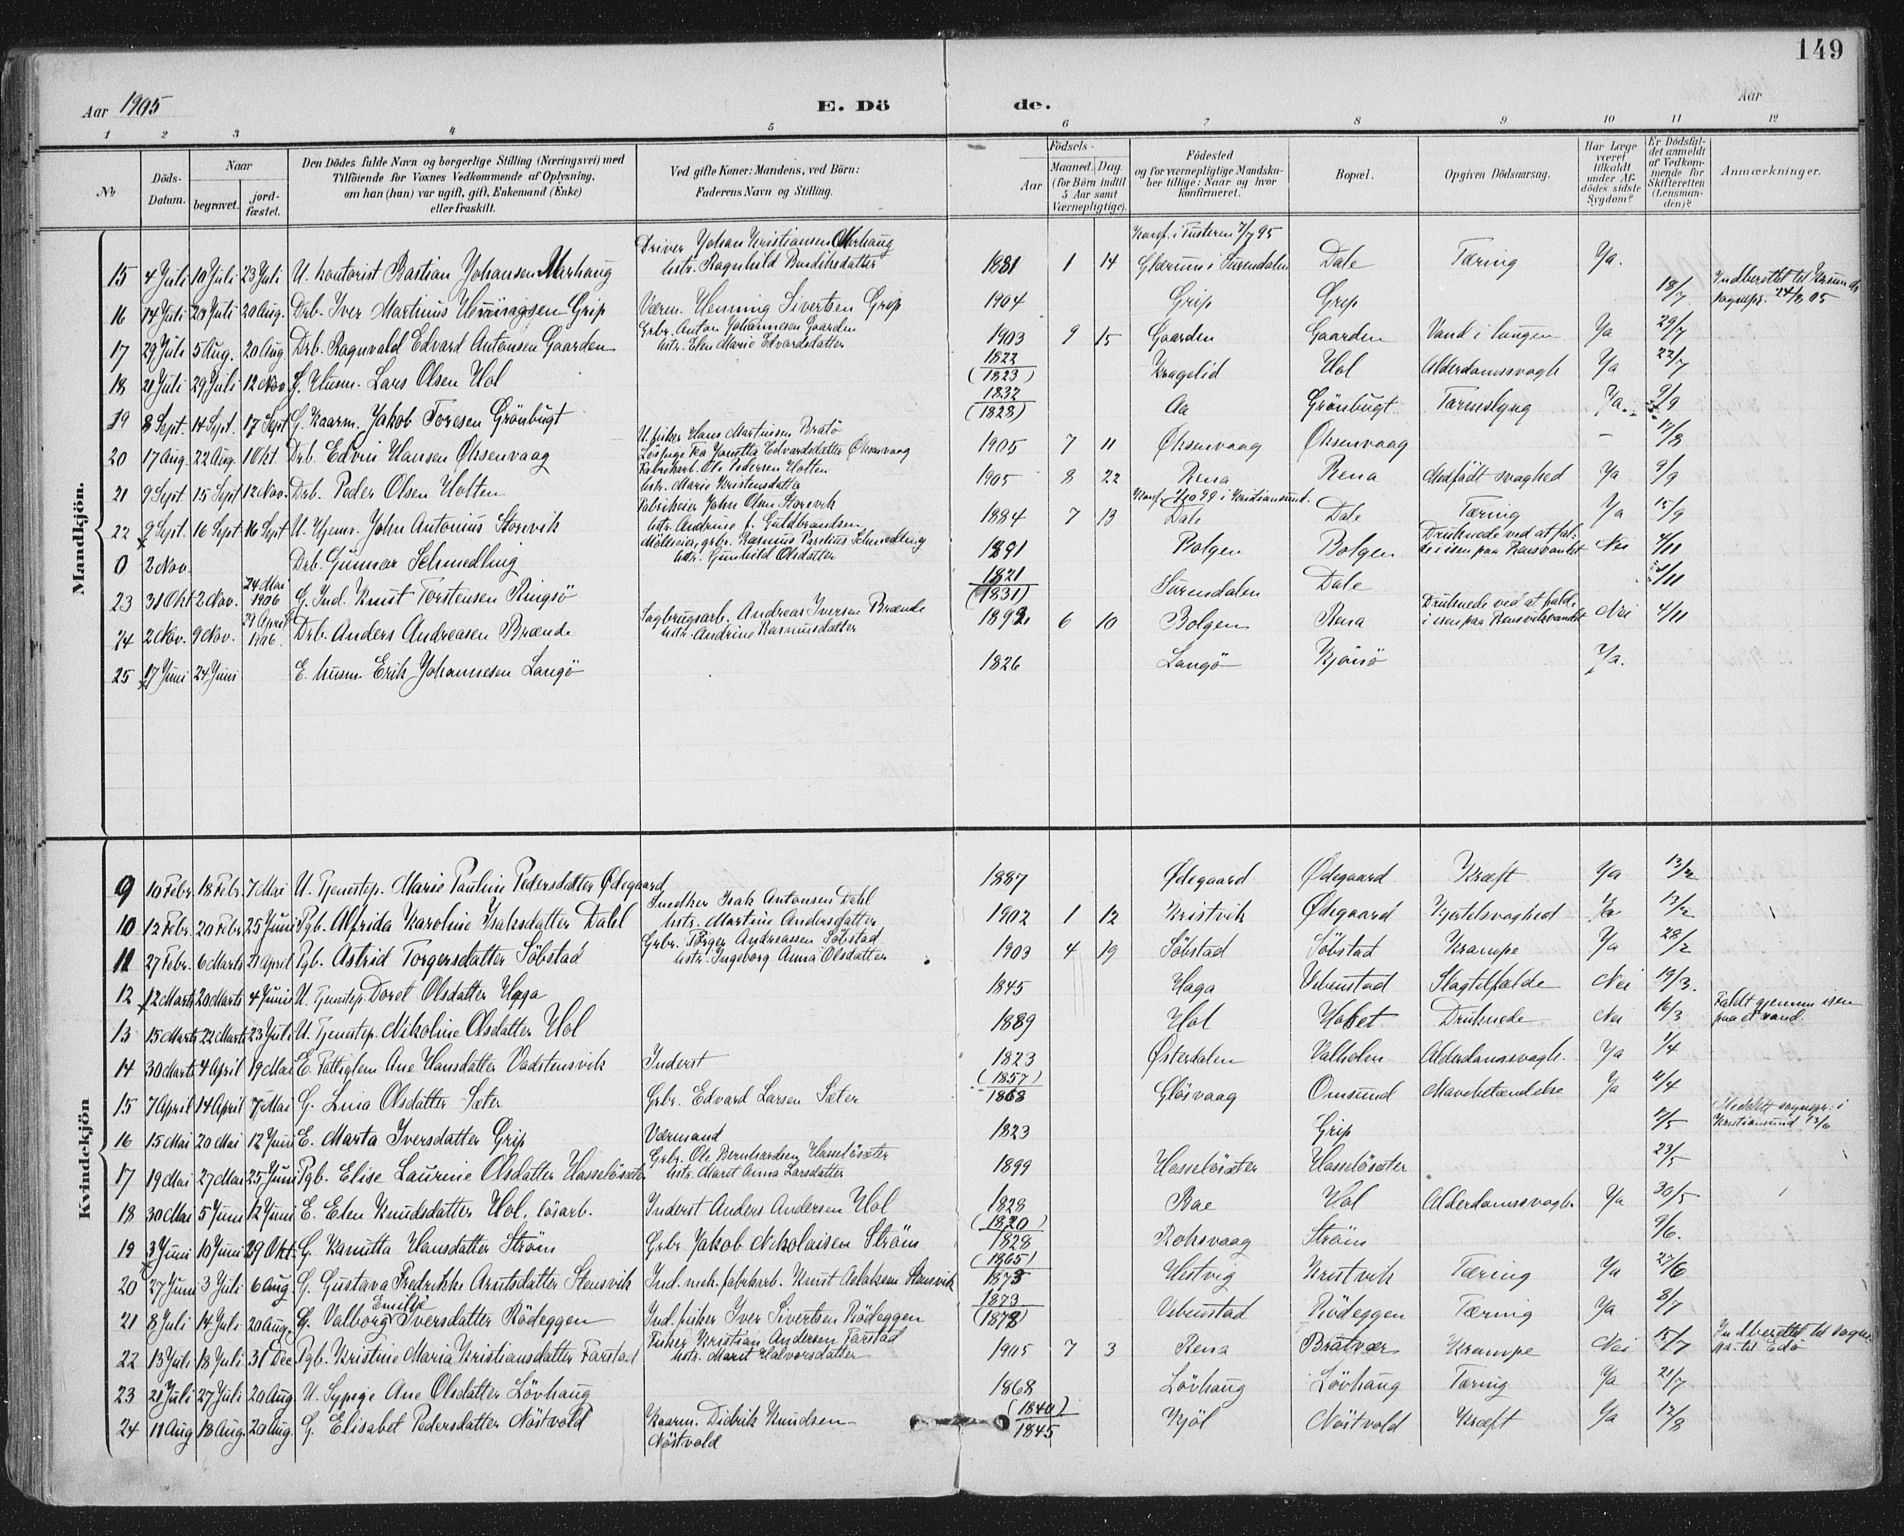 149
Aar 1905 E. Döde. Aar
1 2 3 4 5 6 7 8 9 10 11 12
№ Döds-Datum. Naar begravet. jordfæstet. Den Dödes fulde Navn og borgerlige Stilling (Næringsvei) med Tilföiende for Voxnes Vedkommende af Oplysning, om han (hun) var ugift, gift, Enkemand (Enke) eller fraskilt. Ved gifte Koner: Mandens, ved Börn: Faderens Navn og Stilling. Födsels- Aar Maaned. Dag. (for Börn indtil 5 Aar samt Værnepligtige). Födested og for værnepligtige Mandskaber tillige: Naar og hvor konfirmeret. Bopæl. Opgiven Dödsaarsag. Har Læge været tilkaldt under Afdödes sidste Sygdom? Er Dödsfaldet anmeldt af Vedkommende for Skifteretten (Lensmanden)? Anmærkninger.
Mandkjön.
15 4 Juli 10 Juli 23 Juli U. kontorist Bastian Johansen Marhaug Driver Johan Kristiansen Marhaug hstr. Ragnhild Bendiksdatter 1881 1 14 Konf. i Tusteren 7/7 95 Glærum i Surendalen Dale Tæring Ja.
16 14 Juli 20 Juli 20 Aug. Drb. Iver Martinus Henningsen Grip Værm. Henning Sivertsen Grip 1904 Grip Grip 18/7 Indberettet til Krsunds sognepr. 24/8 05
17 29 Juli 5 Aug. 20 Aug. Drb. Ragnvald Edvard Antonsen Gaarden Grbr. Anton Johannesen Gaarden hstr. Elen Marie Edvardsdatter 1903 9 15 Gaarden Gaarden Vand i lungen Ja 29/7
18 21 Juli 29 Juli 12 Nov. G. Husm. Lars Olsen Hol 1822 (1823) Kragelid Hol Alderdomssvagh. Ja 22/7
19 8 Sept. 14 Sept. 17 Sept. G. Kaarm. Jakob Toresen Grönbugt 1832 (1828) Aa Grönbugt Tarmslyng Ja. 9/9
20 17 Aug. 22 Aug. 1 Okt. Drb. Edvin Hansen Öksenvaag U. fisker Hans Martinsen Bratö Löspige Ka Janetta Edvardsdatter Öksenvaag 1905 7 11 Öksenvaag Öksenvaag – 17/8
21 9 Sept. 15 Sept. 12 Nov. Drb. Peder Olsen Holten Fabrikarb. Ole Pedersen Holten hstr. Marie Kristensdatter 1905 8 22 Rena Rena Medfödt svaghed Ja 9/9
22 9 Sept. 16 Sept. 16 Sept. U. Hjems. John Antonius Storvik Fabrikeier John Olsen Storvik hstr. Andrine f. Guldbrandsen 1884 7 13 Konf. 1/10 99 i Kristiansund. Dale Dale Tæring Ja 15/9
0 2 Nov. Drb. Gunnar Schmedling Mölleeier, grbr. Rasmus Parelius Schmedling hstr. Gunhild Olsdatter 1891 Bolgen Bolgen Druknede ved at falde i isen paa Rensvandet Nei 4/11
23 31 Okt. 2 Nov. 24 Mai 1906 G. Ind. Knut Torstensen Ringsö 1821 (1831) Surendalen Dale /11
24 2 Nov. 9 Nov. April 1906. Drb. Anders Andreasen Brænde Sagbrugsarb. Andreas Iversen Brænde hstr. Andrine Rasmusdatter 1892 6 10 Bolgen Rena Druknede ved at falde i isen paa Rensvikvandet Nei 4/11
25 17 Juni 24 Juni E. husm. Erik Johannesen Langö 1826 Langö Kjönsö Ja.
Kvindekjön
9 10 Febr. 18 Febr. 7 Mai U. Tjenestep. Marie Pauline Pedersdatter Ödegaard 1887 Ödegaard Ödegaard Kræft Ja 13/2
10 12 Febr. 20 Febr. 25 Juni Pgb. Alfrida Karoline Isaksdatter Dahl Snedker Isak Antonsen Dahl hstr. Martine Andersdatter 1902 1 12 Kristvik Ödegaard Kjertelsvaghed Ja 13/2
11 27 Febr. 6 Marts 21 April Pgb. Astrid Torgersdatter Söbstad Grbr. Torger Andreassen Söbstad hstr. Ingeborg Anna Olsdatter 1903 4 19 Söbstad Söbstad Krampe Ja 28/2
12 12 Marts 20 Marts 4 Juni U. Tjenestep. Doret Olsdatter Haga 1845 Haga Vebenstad Slagtilfælde Nei 19/3.
13 15 Marts 22 Marts 23 Juli U. Tjenestep. Nikoline Olsdatter Hol 1889 Hol Holset Druknede Nei 16/3 Faldt gjennem isen paa et vand.
14 30 Marts 4 April 19 Mai E. Fattiglem Ane Hansdatter Vadstensvik Inderst 1823 Österdalen Valholm Alderdomssvagh. Ja 1/4
15 7 April 14 April 7 Mai G. Lina Olsdatter Sæter Grbr. Edvard Larsen Sæter (1857) 1868 Glösvaag Omsund Mavebetændelse Ja /4
16 15 Mai 20 Mai 12 Juni E. Marta Iversdatter Grip Værmand 1823 Grip /5 Meddelt sognepr. i Kristiansund 13/6
17 19 Mai 27 Mai 25 Juni Pgb. Elise Laurine Olsdatter Hasselösæter Grbr. Ole Bernhardsen Hasselösæter hstr. Maret Anna Larsdatter 1899 Hasselösæter Hasselösæter 23/5
18 30 Mai 5 Juni 12 Juni E. Elen Knudsdatter Hol, lösarb. Inderst Anders Andersen Hol 1828 Bae Hol Alderdomssvagh. Ja 30/5
19 3 Juni 10 Juni 29 Okt. G. Kanutta Hansdatter Ström Grbr. Jakob Nikolaisen Ström (1820) 1828 Rokvaag Ström 9/6.
20 27 Juni 3 Juli 6 Aug. G. Gustava Fredrikke Arntsdatter Stensvik Ind. mek. fabrikarb. Knut Aslaksen Stensvik (1865) 1873 Hestvig Kristvik Tæring Ja 27/6
21 8 Juli 14 Juli 20 Aug. G. Valborg Emilie Iversdatter Rödeggen Ind. fisker Iver Sivertsen Rödeggen 1873 (1878) Vebenstad Rödeggen Tæring Ja 8/7
22 13 Juli 18 Juli 31 Dec Pgb. Kristine Maria Kristiansdatter Farstad Fisker Kristian Andersen Farstad hstr. Marit Halvorsdatter 1905 7 3 Rena Bratvær Krampe Nei 15/7 Indberettet til sognepr. til Edö
23 21 Juli 27 Juli 20 Aug. U. Sypige Ane Olsdatter Lövhaug 1868 Lövhaug Lövhaug Tæring Ja 21/7
24 11 Aug. 18 Aug. 20 Aug. G. Elisabet Pedersdatter Nöstvold Kaarm. Didrik Knudsen Nöstvold (1840) 1845 Kjöl Nöstvold Kræft Ja 12/8